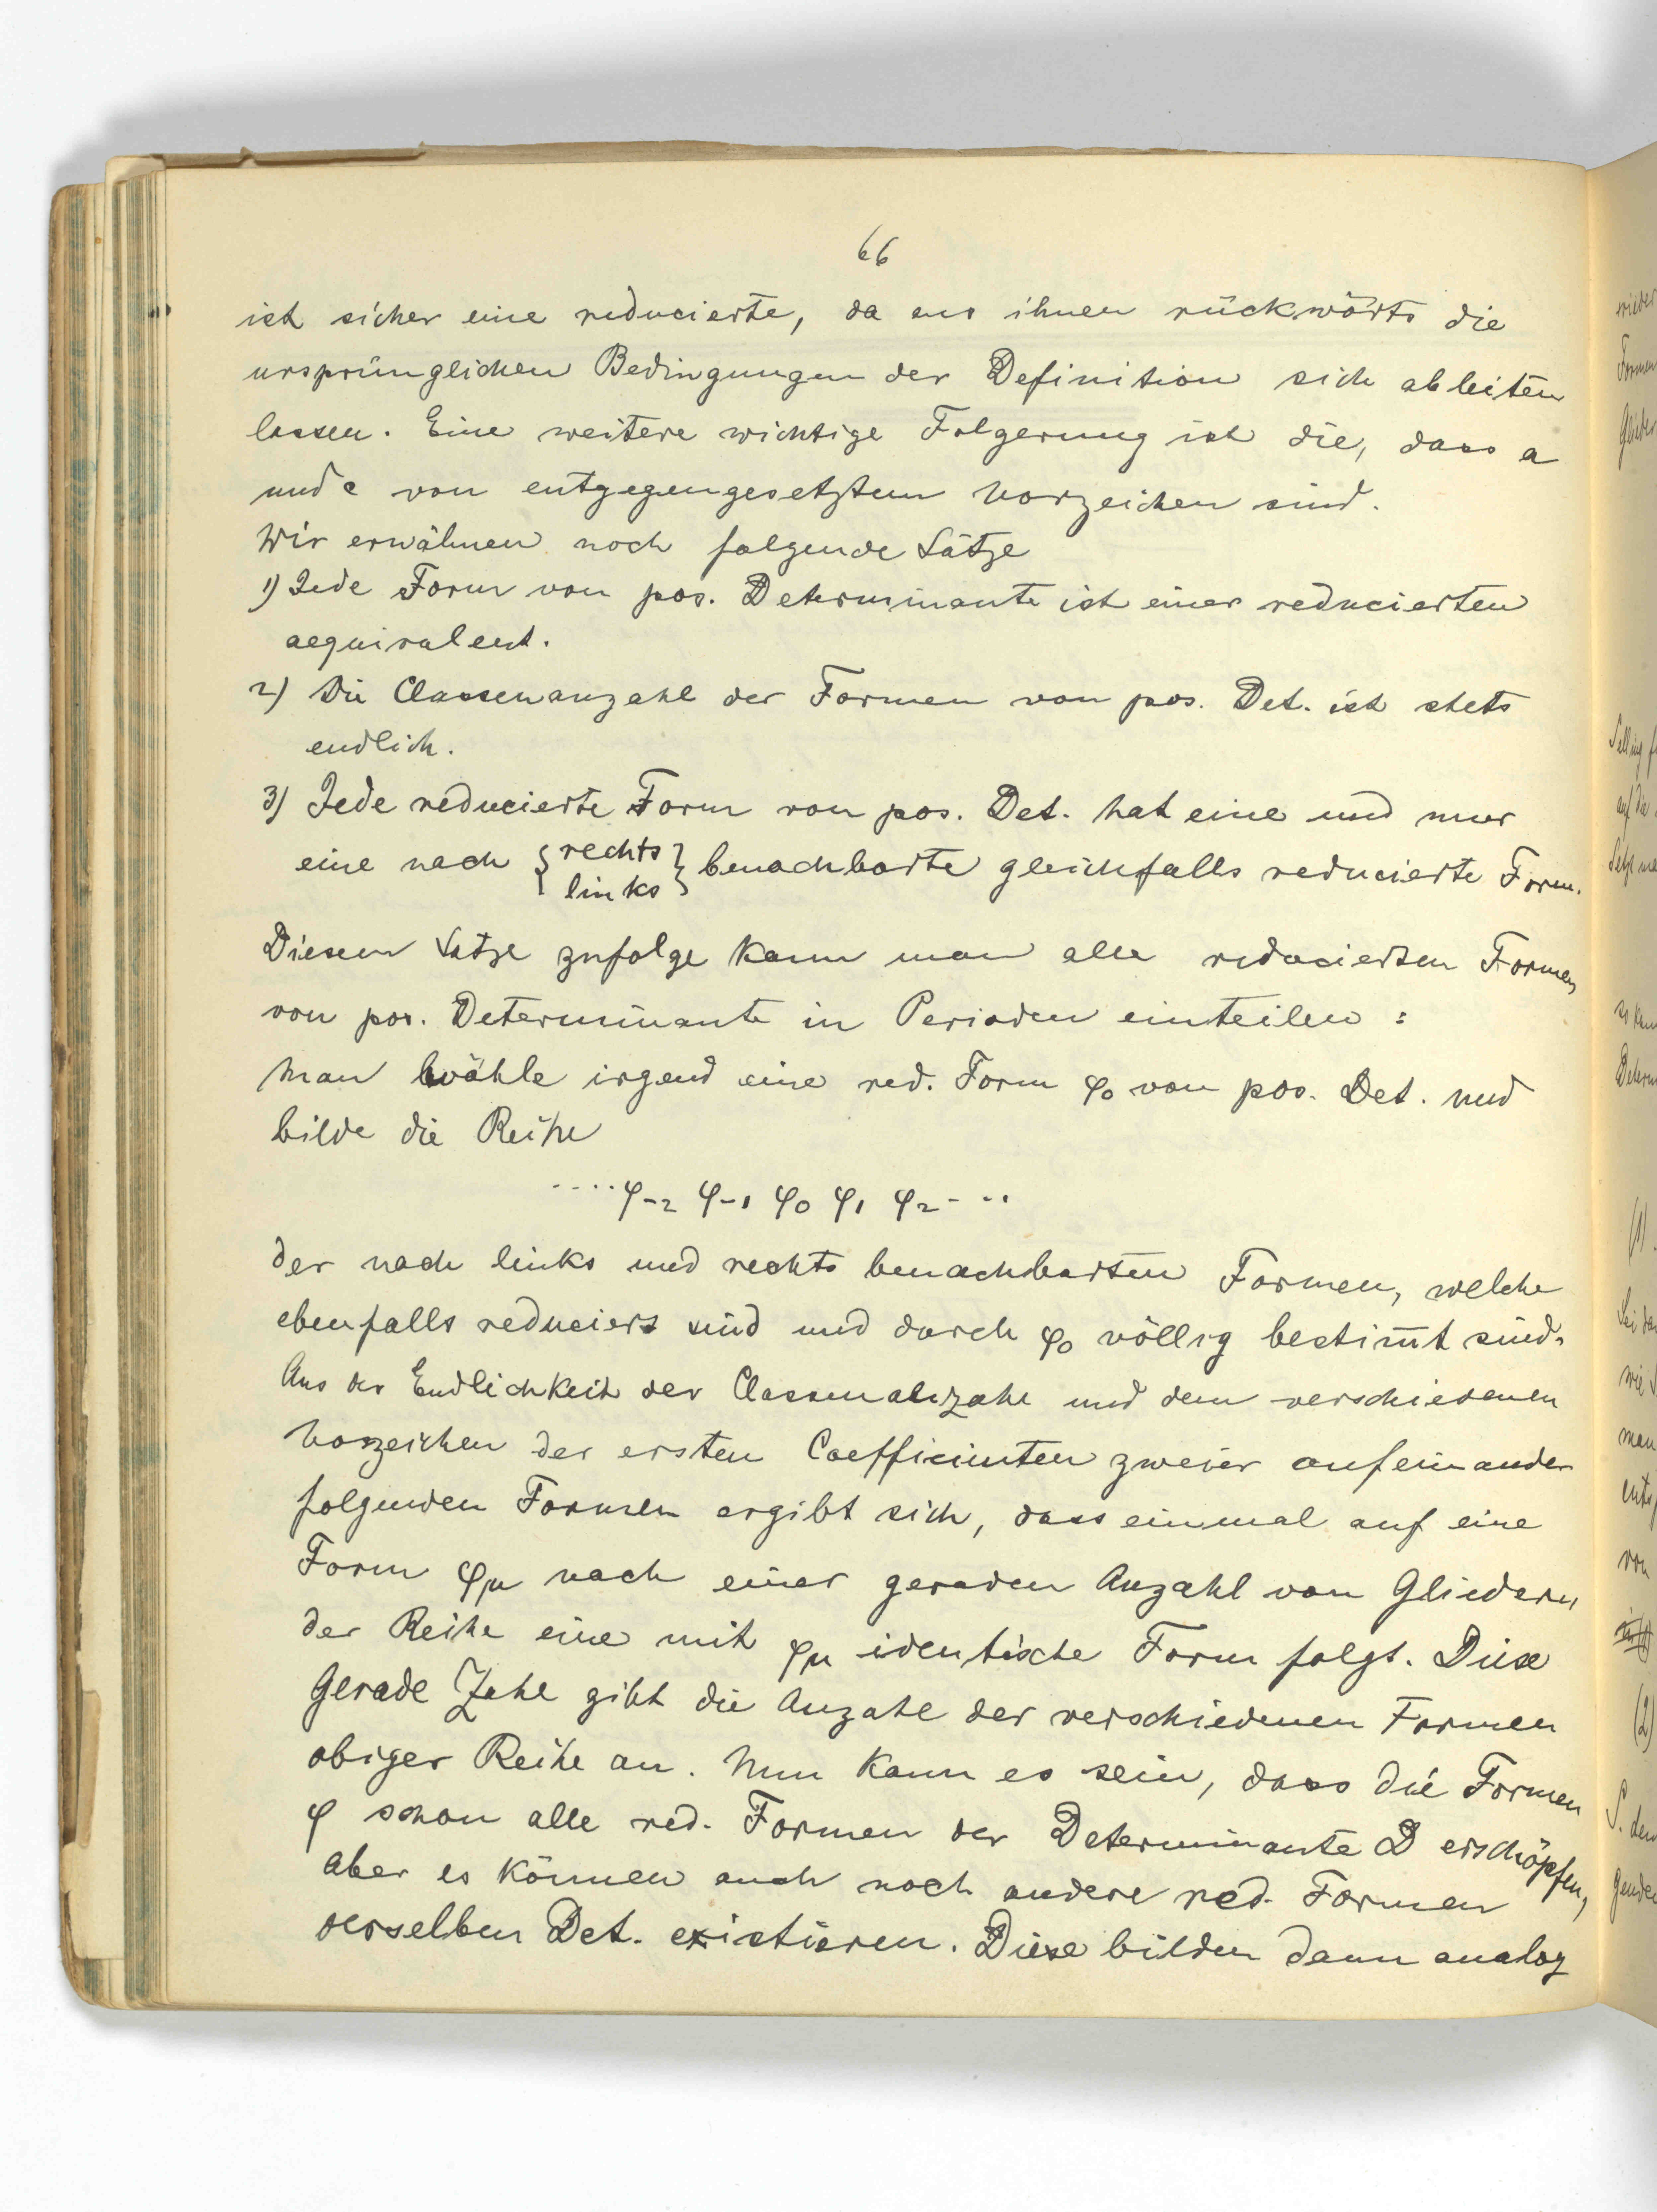 66
ist sicher eine reducierte, da aus ihnen rückwärts die
ursprünglichen Bedingungen der Definition sich ableiten
lassen. Eine weitere wichtige Folgerung ist die, dass a
und c von entgegengesetztem Vorzeichen sind.
Wir erwähnen noch folgende Sätze
1) Jede Form von pos. Determinante ist einer reducierten
aequivalent.
2) Die Classenanzahl der Formen von pos. Det. ist stets
endlich.
3) Jede reducierte Form von pos. Det. hat eine und nur
eine nach { rechts links } benachbarte gleichfalls reducierte Form.
Diesem Satze zufolge kann man alle reducierten Formen
von pos. Determinante in Perioden einteilen :
Man wähle irgend eine red. Form φ₀ von pos. Det. und
bilde die Reihe
.... φ₋₂ φ₋₁ φ₀ φ₁ φ₂ ...
der nach links und rechts benachbarten Formen, welche
ebenfalls reduciert sind und durch φ₀ völlig bestim̅t sind.
Aus der Endlichkeit der Classenanzahl und dem verschiedenen
Vorzeichen der ersten Coefficienten zweier aufeinander
folgenden Formen ergibt sich, dass einmal auf eine
Form φμ nach einer geraden Anzahl von Gliedern
der Reihe eine mit φμ identische Form folgt. Diese
Gerade Zahl gibt die Anzahl der verschiedenen Formen
obiger Reihe an. Nun kann es sein, dass die Formen
φ schon alle red. Formen der Determinante D erschöpfen,
aber es können auch noch andere red. Formen
derselben Det. existieren. Diese bilden dann analog